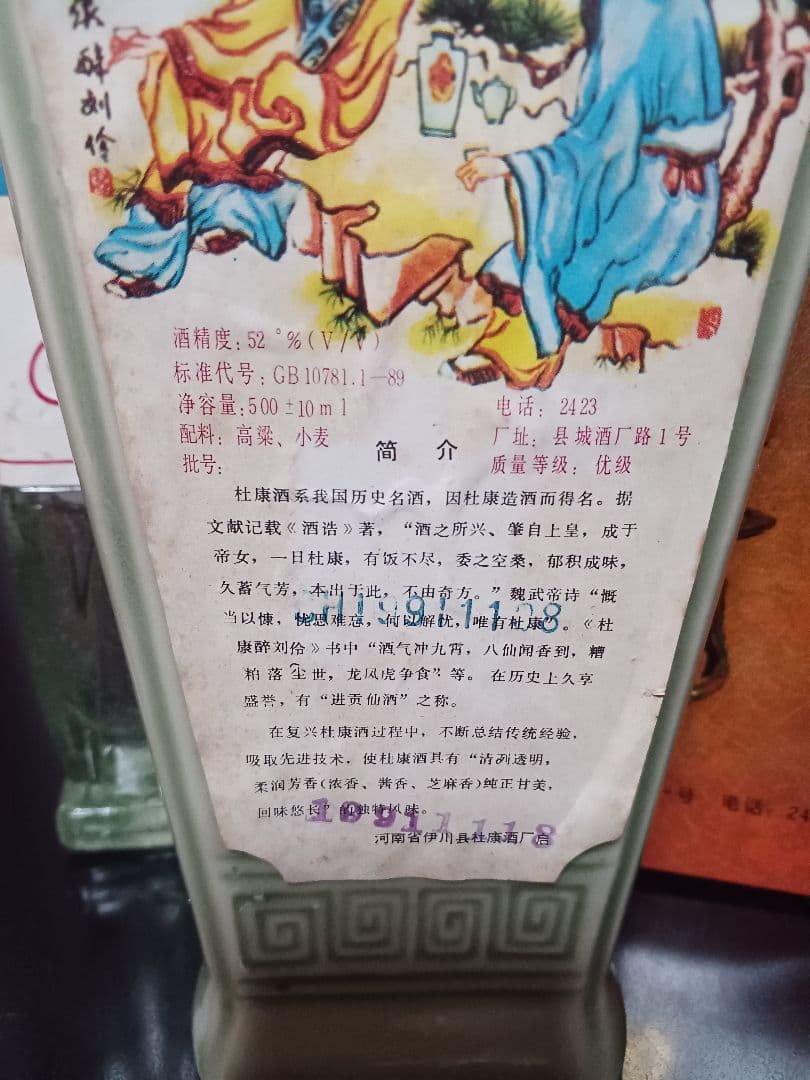 醉刘伶
酒精度:52°%(V/V)
标准代号:GB10781.1—89
净容量:500±10ml
电话:2423
配料:高粱、小麦
厂址:县城酒厂路1号
批号:
质量等级:优级
简介
杜康酒系我国历史名酒,因杜康造酒而得名。据
文献记载《酒诰》著,“酒之所兴、肇自上皇,成于
帝女,一日杜康,有饭不尽,委之空桑,郁积成味,
久蓄气芳,本出于此,不由奇方。”魏武帝诗“慨
当以慷,忧思难忘,何以解忧,唯有杜康”。《杜
康醉刘伶》书中“酒气冲九霄,八仙闻香到,糟
粕落尘世,龙凤虎争食”等。在历史上久享
盛誉,有“进贡仙酒”之称。
19911108
在复兴杜康酒过程中,不断总结传统经验,
吸取先进技术,使杜康酒具有“清冽透明,
柔润芳香(浓香、酱香、芝麻香)纯正甘美,
回味悠长”的独特风味。
19911118
河南省伊川县杜康酒厂启
号 电话:24